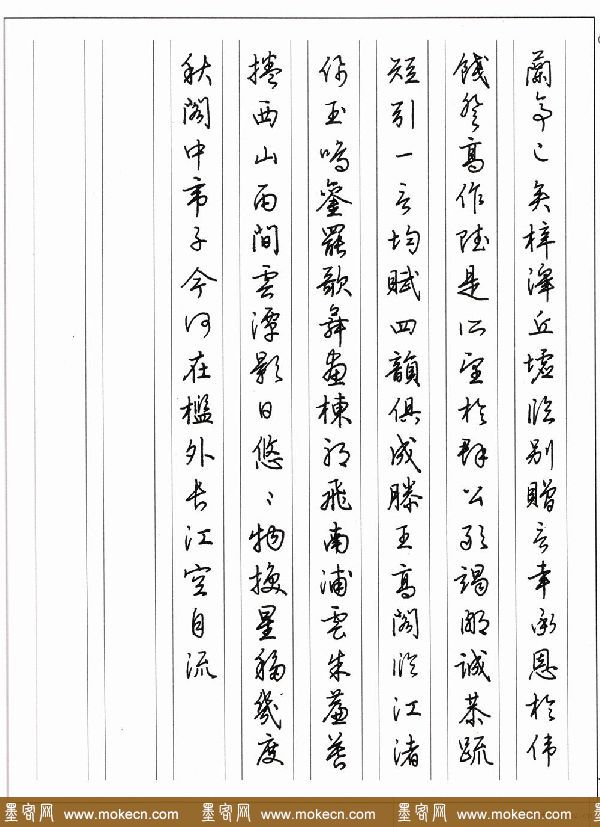 蘭亭已矣梓澤丘墟临别贈言幸承恩於伟
餞登高作賦是所望於群公敢竭鄙誠恭疏
短引一言均賦四韻俱成滕王高閣临江渚
佩玉鳴鑾罷歌舞畫棟朝飛南浦雲朱簾暮
捲西山雨間雲潭影日悠〻物換星移幾度
秋閣中帝子今何在檻外长江空自流
墨客网 www.mokecn.com 墨客网 www.mokecn.com 墨客网 www.mokecn.com 墨客网